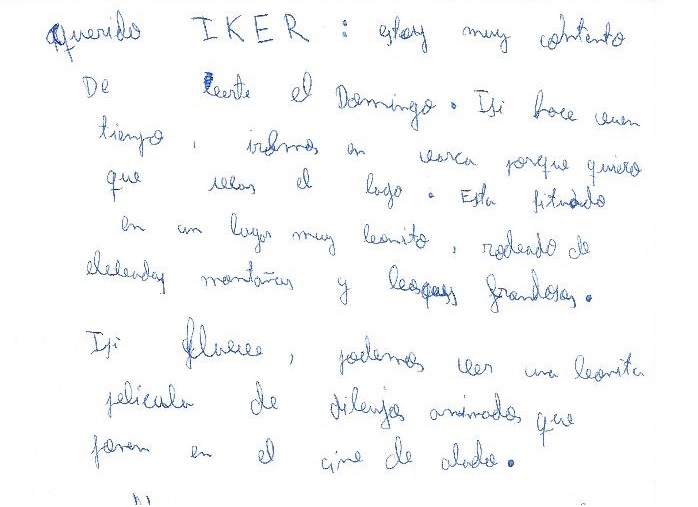 Querido IKER : estoy muy contento
De verte el Domingo. Isi hace vuen
tienpo , iremos en varca porque quiero
que veas el lago. Esta situado
en un lugar muy bonito , rodeado de
elevadas montañas y bosques frondosos.
Isi llueve , podemos ver una bonita
pelicula de dibujos animados que
ponen en el cine de alado.